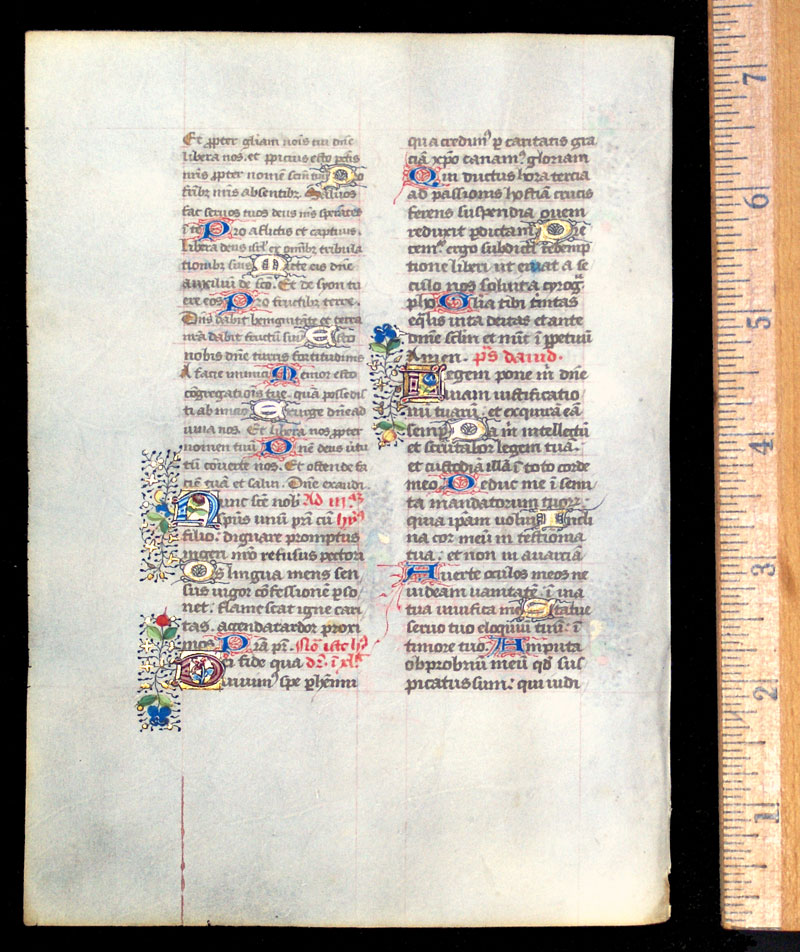 Et ꝓpter gliam nois tui dn̄e
libera nos. et ꝓpicius esto pctis
nr̄is ꝓpter nomen scm̄ tuū Pro
fr̄ibꝫ nr̄is absentibꝫ. Saluos
fac seruos tuos deus m̄s sperātes
ī te Pro afflictis et captiuis.
libera deus isrl' ex omībꝫ tribula
tionibꝫ suis Mitte eis dn̄e
auxiliū de sc̄o. Et de syon tu
ere eos Pro fructibꝫ terre.
Dn̄s dabit benignitātē et terra
nr̄a dabit fructū suū Esto
nobis dn̄e turris fortitudinis
A facie inimici Memor esto
cōgregationis tue. quā possedis
ti ab inicio Exurge dn̄e ad
iuua nos. Et libera nos ꝓpter
nomen tuū Dn̄e deus u'tu
tū cōuerte nos. Et ostende fa
ciē tuā et salui. Dn̄e exaudi.
Nunc sc̄e nob' Ad iijᵃᵐ
spūs unū pr̄i cū hyᵖ⁹
filio. dignare promptus
ingeri nr̄o refusus pectori
Os lingua mens sen
sus uigor cōfessionē ꝑso
net. flamescat igne cari
tas. accendat ardor proxi
mos. Pr̄ia pr̄.
ci fide qua d:̄ ī xlᵃ
uiuim⁹ spe ꝑhenni
qua credim⁹ ꝑ caritatis gra
ciā xp̄o canam⁹ gloriam
Qui ductus hora tercia
ad passionis hostiā crucis
ferens suspendia ouem
reduxit ꝑditam Pre
cem⁹ ergo subditi redemp
tione liberi ut eruat a se
culo nos soluit a cyrog̃
pho Gl'ia tibi trinitas
eq̄lis una deitas et ante
omne sclm̄ et nūc ī ꝑpetuū
Amen. p̄s dauid.
Legem pone m̄ dn̄e
uiam iustificatio
nū tuarū. et exquirā eā
semꝑ Da m̄ intellectū
et scrutabor legem tuā.
et custodiā illā ī toto corde
meo. Deduc me ī semi
ta mandatorum tuorꝫ.
quia ipam uolui Incli
na cor meū in testimonia
tua. et non in auariciā
Auerte oculos meos ne
uideam uanitatē. ī uia
tua uiuifica me Statue
seruo tuo eloquiū tuū. ī
timore tuo. Amputa
obprobriū meū qd̄ sus
picatus sum. qui iudi
7
6
5
4
3
2
1